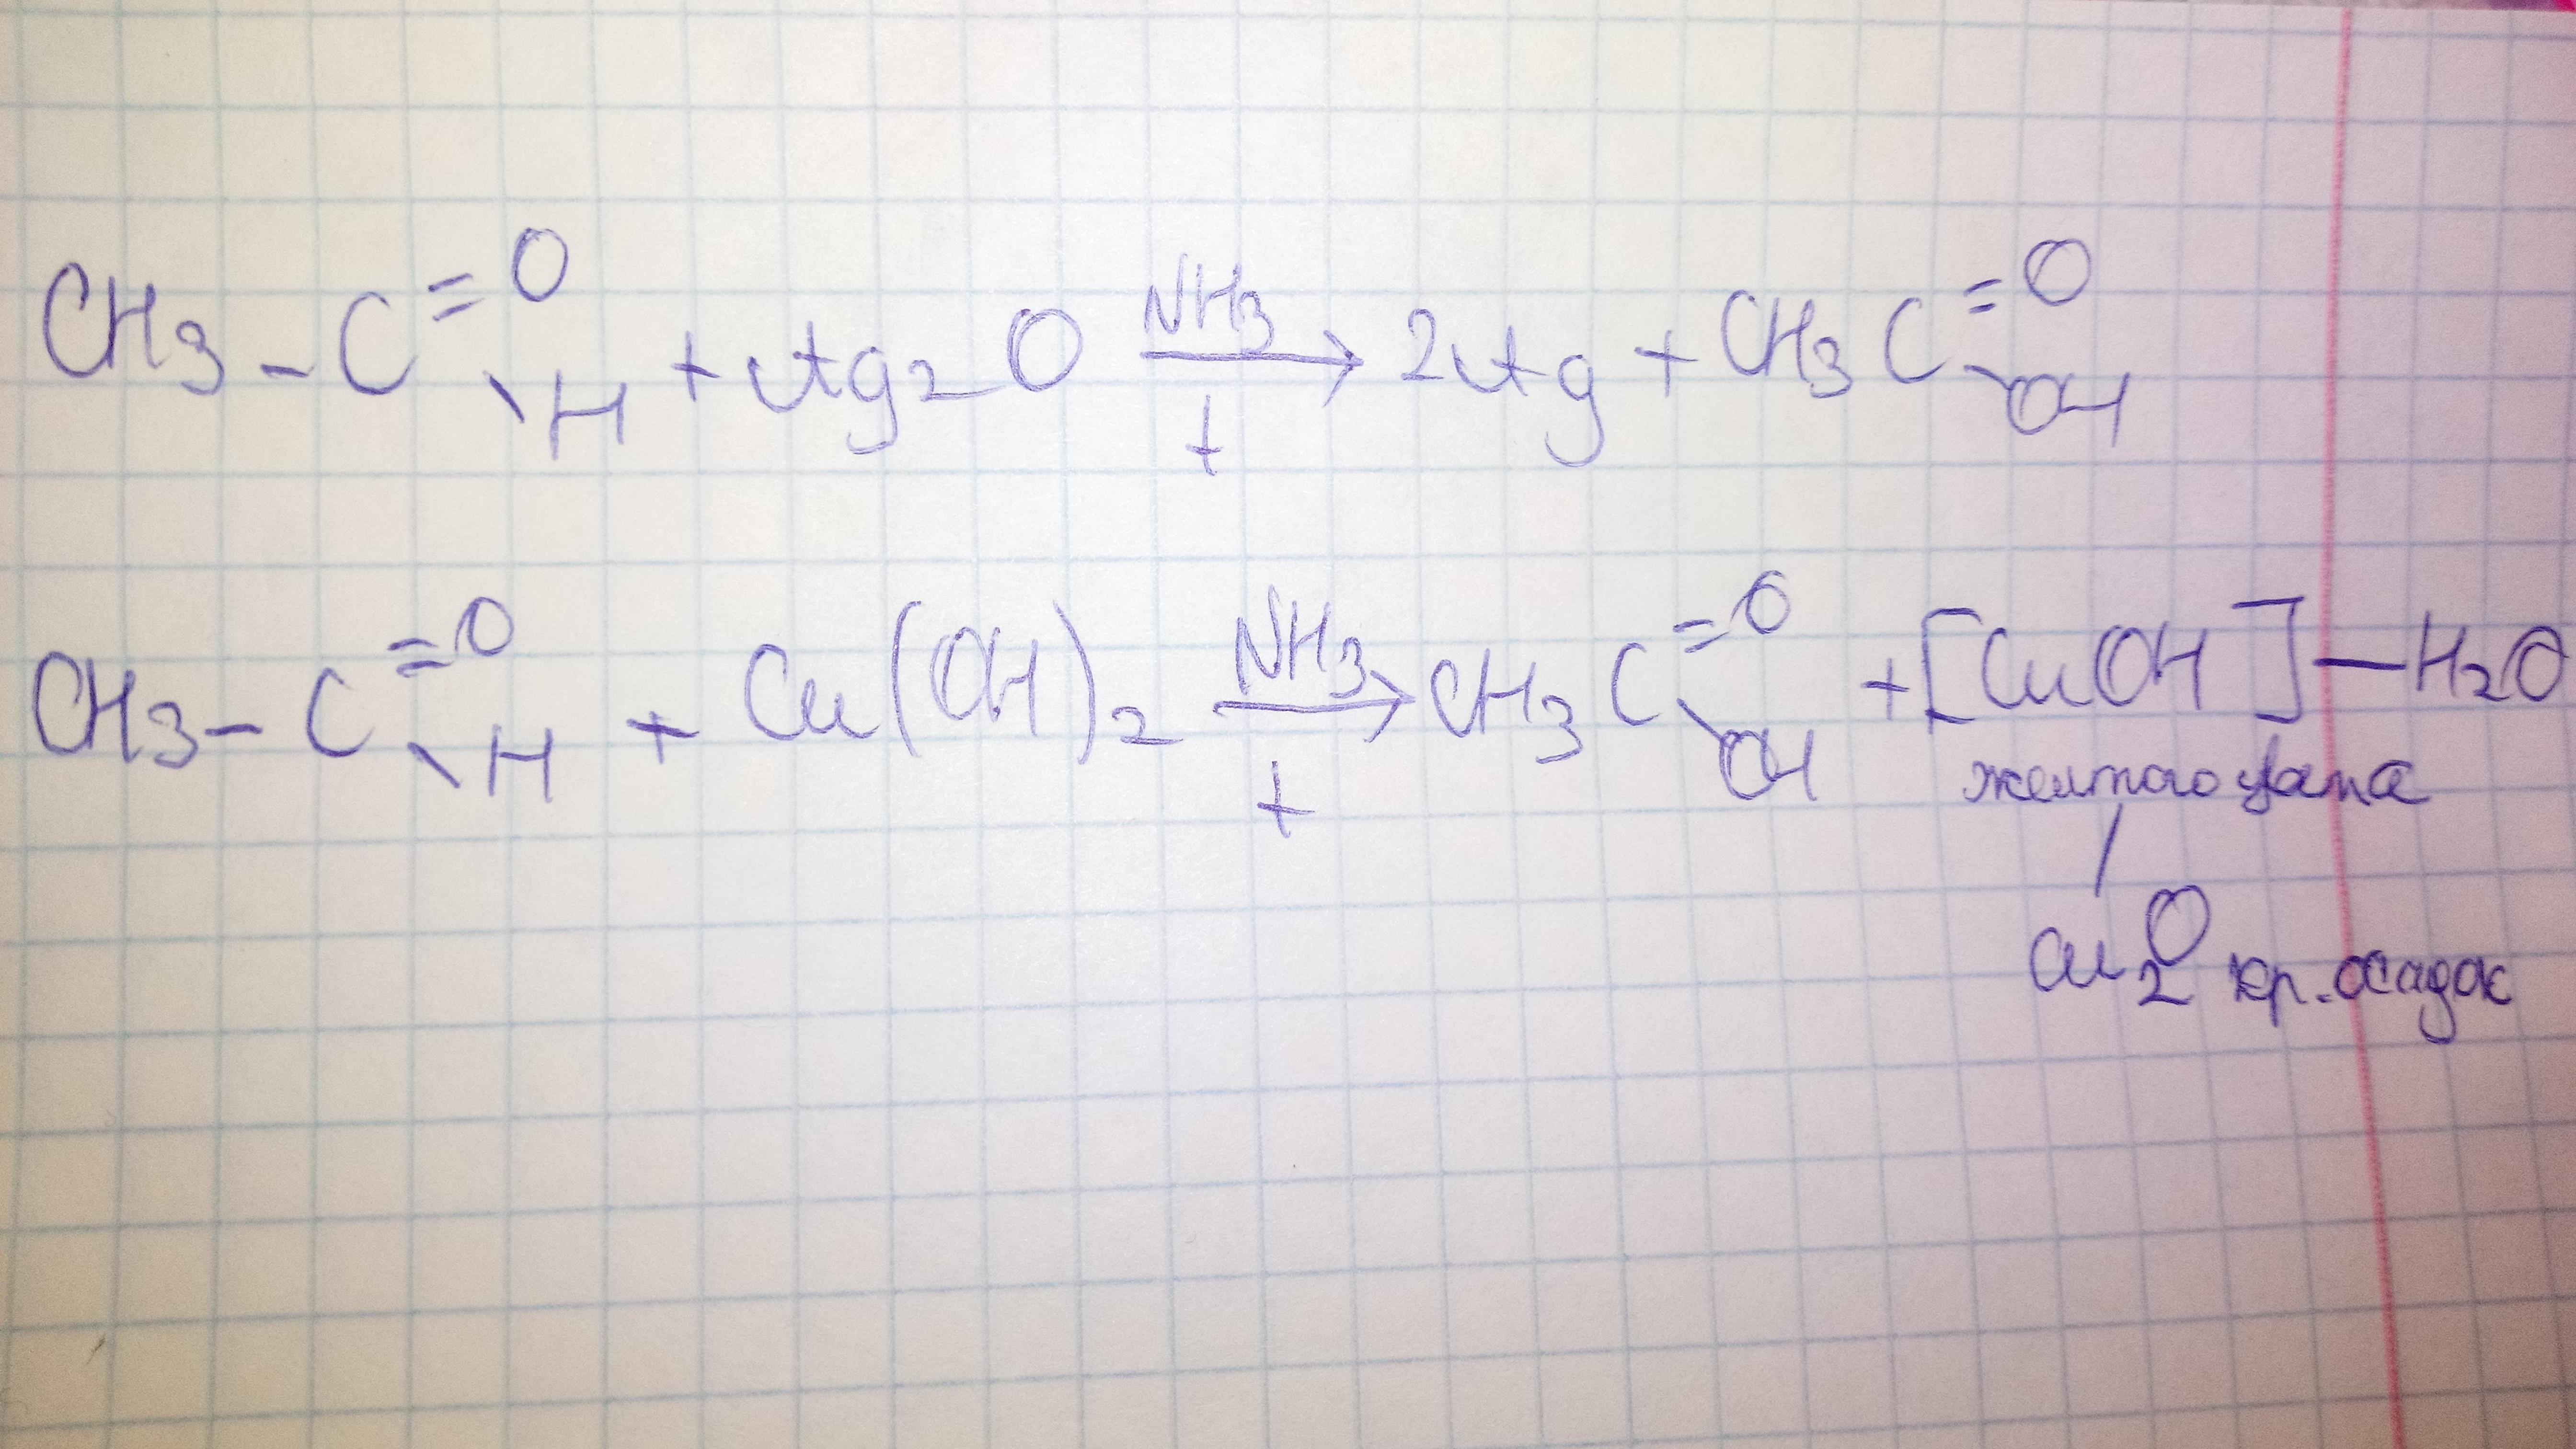 CH3 - C =O \H + Ag2O NH3 → t 2Ag + CH3 C =O \OH
CH3 - C =O \H + Cu(OH)2 NH3 → t CH3 C =O \OH + [CuOH] — H2O
желтого цвета
/
Cu2O кр. осадок